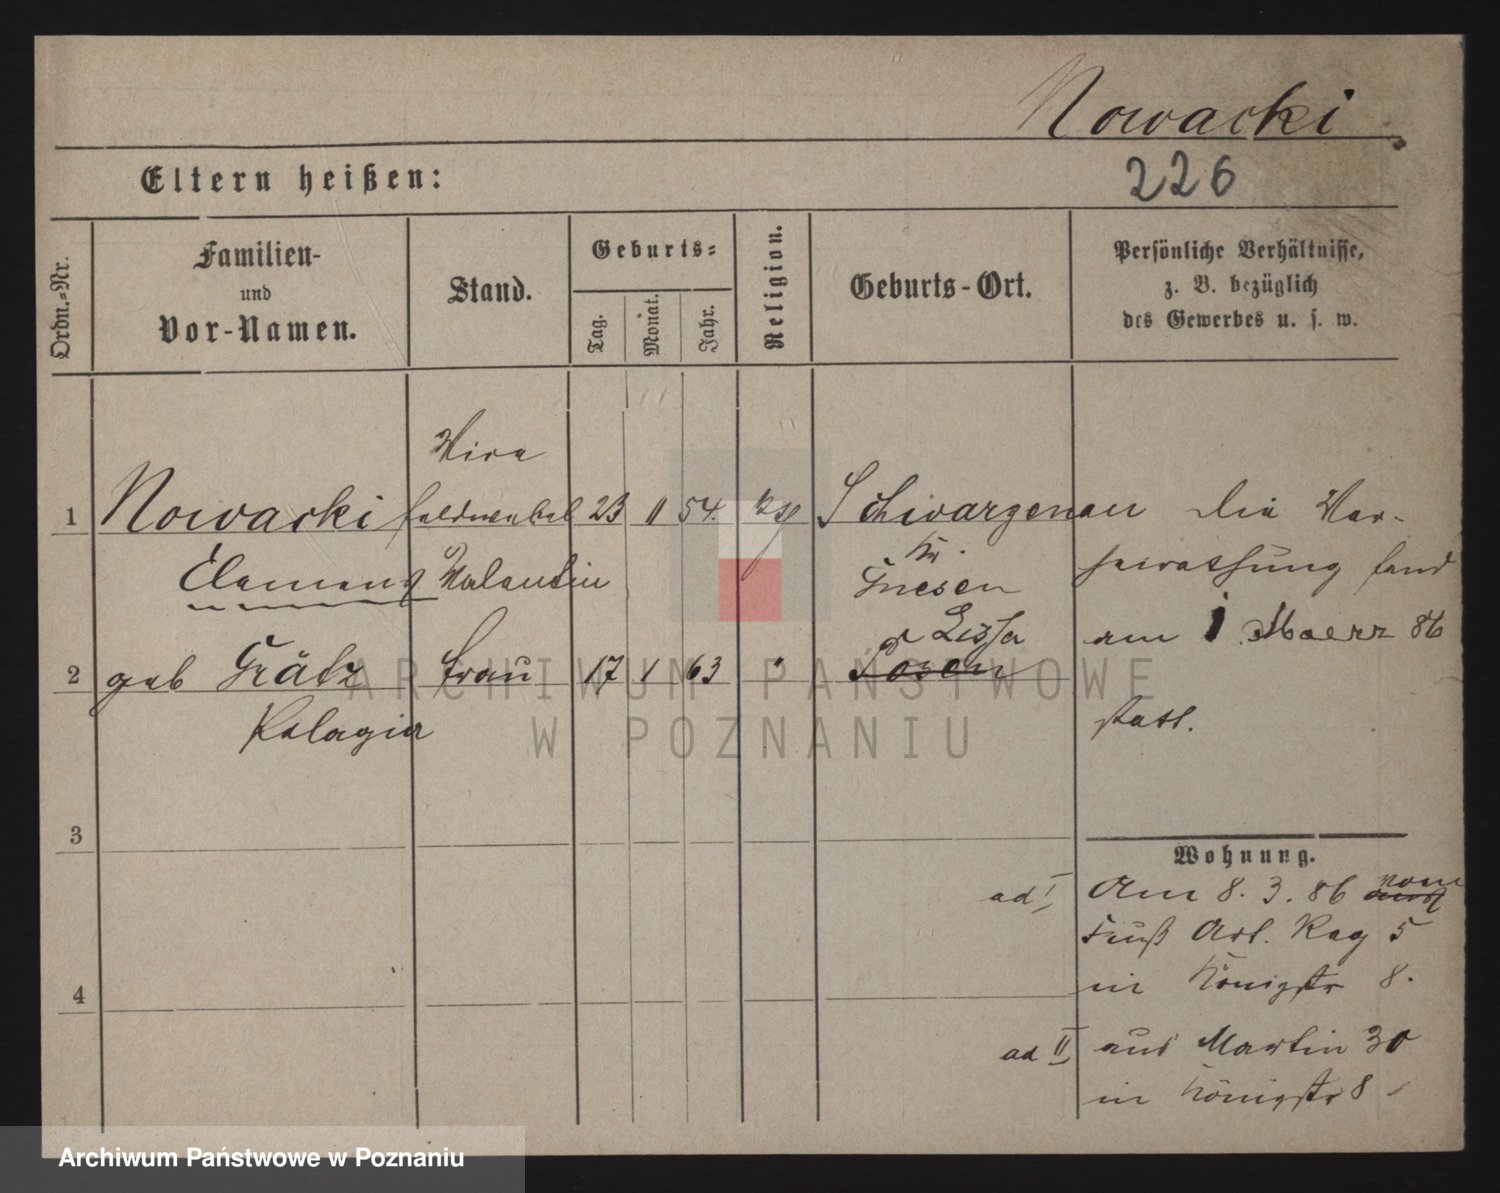 Nowacki
226
Eltern heißen:
Ordn.-Nr.
Familien-
und
Vor-Namen.
Stand.
Geburts-
Tag.
Monat.
Jahr.
Religion.
Geburts-Ort.
Persönliche Verhältnisse,
z. B. bezüglich
des Gewerbes u. s. w.
Vice
1 Nowacki feldwebel 23 11 54. Schwarzenau Die Ver-
Kr.
Clemens Valentin Gnesen heirathung fand
Lissa am 1 Maerz 86
2 geb Grätz Frau 17 1 63 " Posen
Pelagia statt.
3
Wohnung.
ad I Am 8. 3. 86 vom
Fuß Art. Reg 5
4 in Königstr 8.
ad II aus Martin 30
in Königstr 8
ARCHIWUM PAŃSTWOWE
W POZNANIU
Archiwum Państwowe w Poznaniu